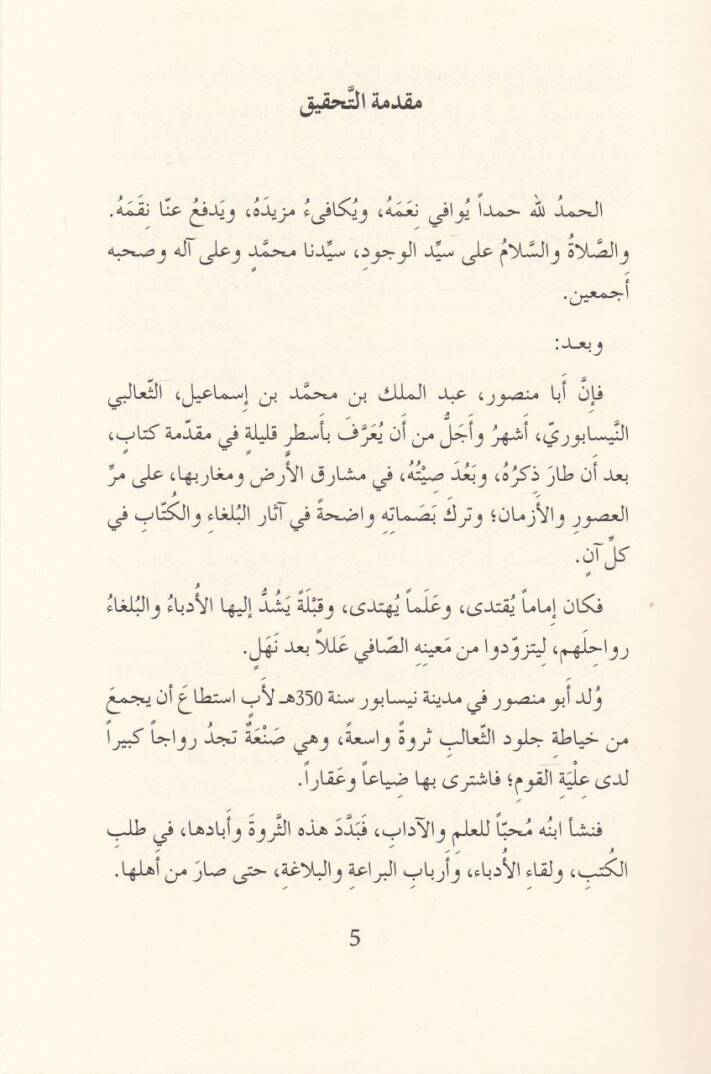 مقدمة التَّحقيق
الحمدُ لله حمداً يُوافي نِعَمَهُ، ويُكافىءُ مزيدَهُ، ويَدفعُ عنّا نِقَمَهُ.
والصَّلاةُ والسَّلامُ على سيِّد الوجودِ، سيِّدنا محمَّدٍ وعلى آله وصحبه
أَجمعين.
وبعـد:
فإنَّ أَبا منصور، عبد الملك بن محمَّد بن إِسماعيل، الثّعالبي
النَّيسابوريّ، أَشهرُ وأَجَلُّ من أَن يُعَرَّفَ بأَسطرٍ قليلةٍ في مقدّمة كتابٍ،
بعد أَن طارَ ذِكرُهُ، وبَعُدَ صِيْتُهُ، في مشارق الأَرض ومغاربها، على مرِّ
العصورِ والأَزمان؛ وتركَ بَصَماتِهِ واضحةً في آثار البُلغاءِ والكُتّابِ في
كلِّ آنٍ.
فكان إِماماً يُقتدى، وعَلَماً يُهتدى، وقبْلَةً يَشُدُّ إِليها الأُدباءُ والبُلغاءُ
رواحِلَهم، لِيتزوّدوا من مَعينِهِ الصّافي عَللاً بعد نَهَلٍ.
وُلد أَبو منصور في مدينة نيسابور سنة 350هـ لأَبٍ استطاعَ أن يجمعَ
من خياطةِ جلود الثّعالبِ ثروةً واسعةً، وهي صَنْعَةٌ تجدُ رواجاً كبيراً
لدى عِلْيَةِ القومِ؛ فاشترى بها ضِياعاً وعَقاراً.
فنشأ ابنُه مُحبّاً للعلمِ والآدابِ، فَبَدَّدَ هذه الثَّروةَ وأَبادها، في طلبِ
الكُتبِ، ولقاءِ الأُدباء، وأَربابِ البراعةِ والبلاغةِ، حتى صارَ من أَهلها.
5